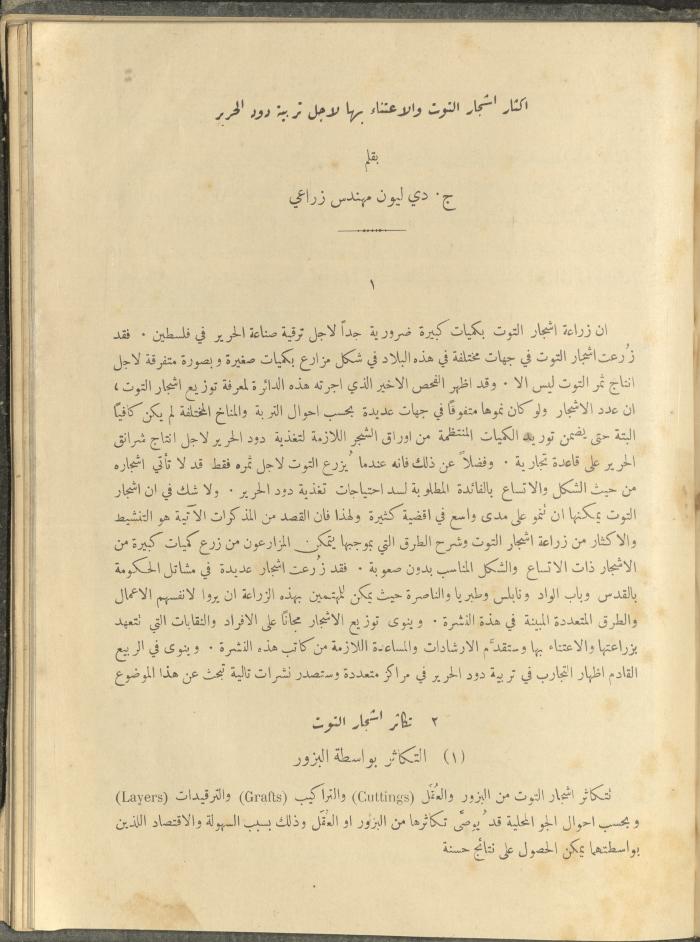 اكثار اشجار التوت والاعتناء بها لاجل تربية دود الحرير
بقلم
ج. دي ليون مهندس زراعي
١
ان زراعة اشجار التوت بكميات كبيرة ضرورية جداً لاجل ترقية صناعة الحرير في فلسطين . فقد
زُرعت اشجار التوت في جهات مختلفة في هذه البلاد في شكل مزارع بكميات صغيرة وبصورة متفرقة لاجل
انتاج ثمر التوت ليس الا . وقد اظهر الفحص الاخير الذي اجرته هذه الدائرة لمعرفة توزيع اشجار التوت ،
ان عدد الاشجار ولو كان نموها متفوقاً في جهات عديدة بحسب احوال التربة والمناخ المختلفة لم يكن كافياً
البتة حتى يضمن توريد الكميات المنتظمة من اوراق الشجر اللازمة لتغذية دود الحرير لاجل انتاج شرانق
الحرير على قاعدة تجارية . وفضلاً عن ذلك فانه عندما يُزرع التوت لاجل ثمره فقط قد لا تأتي اشجاره
من حيث الشكل والاتساع بالفائدة المطلوبة لسد احتياجات تغذية دود الحرير . ولا شك في ان اشجار
التوت يمكنها ان تنمو على مدى واسع في اقضية كثيرة ولهذا فان القصد من المذكرات الآتية هو التنشيط
والاكثار من زراعة اشجار التوت وشرح الطرق التي بموجبها يتمكن المزارعون من زرع كميات كبيرة من
الاشجار ذات الاتساع والشكل المناسب بدون صعوبة . فقد زُرعت اشجار عديدة في مشاتل الحكومة
بالقدس وباب الواد ونابلس وطبريا والناصرة حيث يمكن للمهتمين بهذه الزراعة ان يروا لانفسهم الاعمال
والطرق المتعددة المبينة في هذة النشرة . وينوى توزيع الاشجار مجاناً على الافراد والنقابات التي نتعهد
بزراعتها والاعتناء بها وستقدَّم الارشادات والمساعدة اللازمة من كاتب هذه النشرة . وينوى في الربيع
القادم اظهار التجارب في تربية دود الحرير في مراكز متعددة وستصدر نشرات تالية تبحث عن هذا الموضوع
٢ تكاثر اشجار التوت
(١) التكاثر بواسطة البزور
نتكاثر اشجار التوت من البزور والعُقَل (Cuttings) والتراكيب (Grafts) والترقيدات (Layers)
وبحسب احوال الجو المحلية قد يُوصَّى تكاثرها من البزور او العُقَل وذلك بسبب السهولة والاقتصاد اللذين
بواسطتهما يمكن الحصول على نتائج حسنة